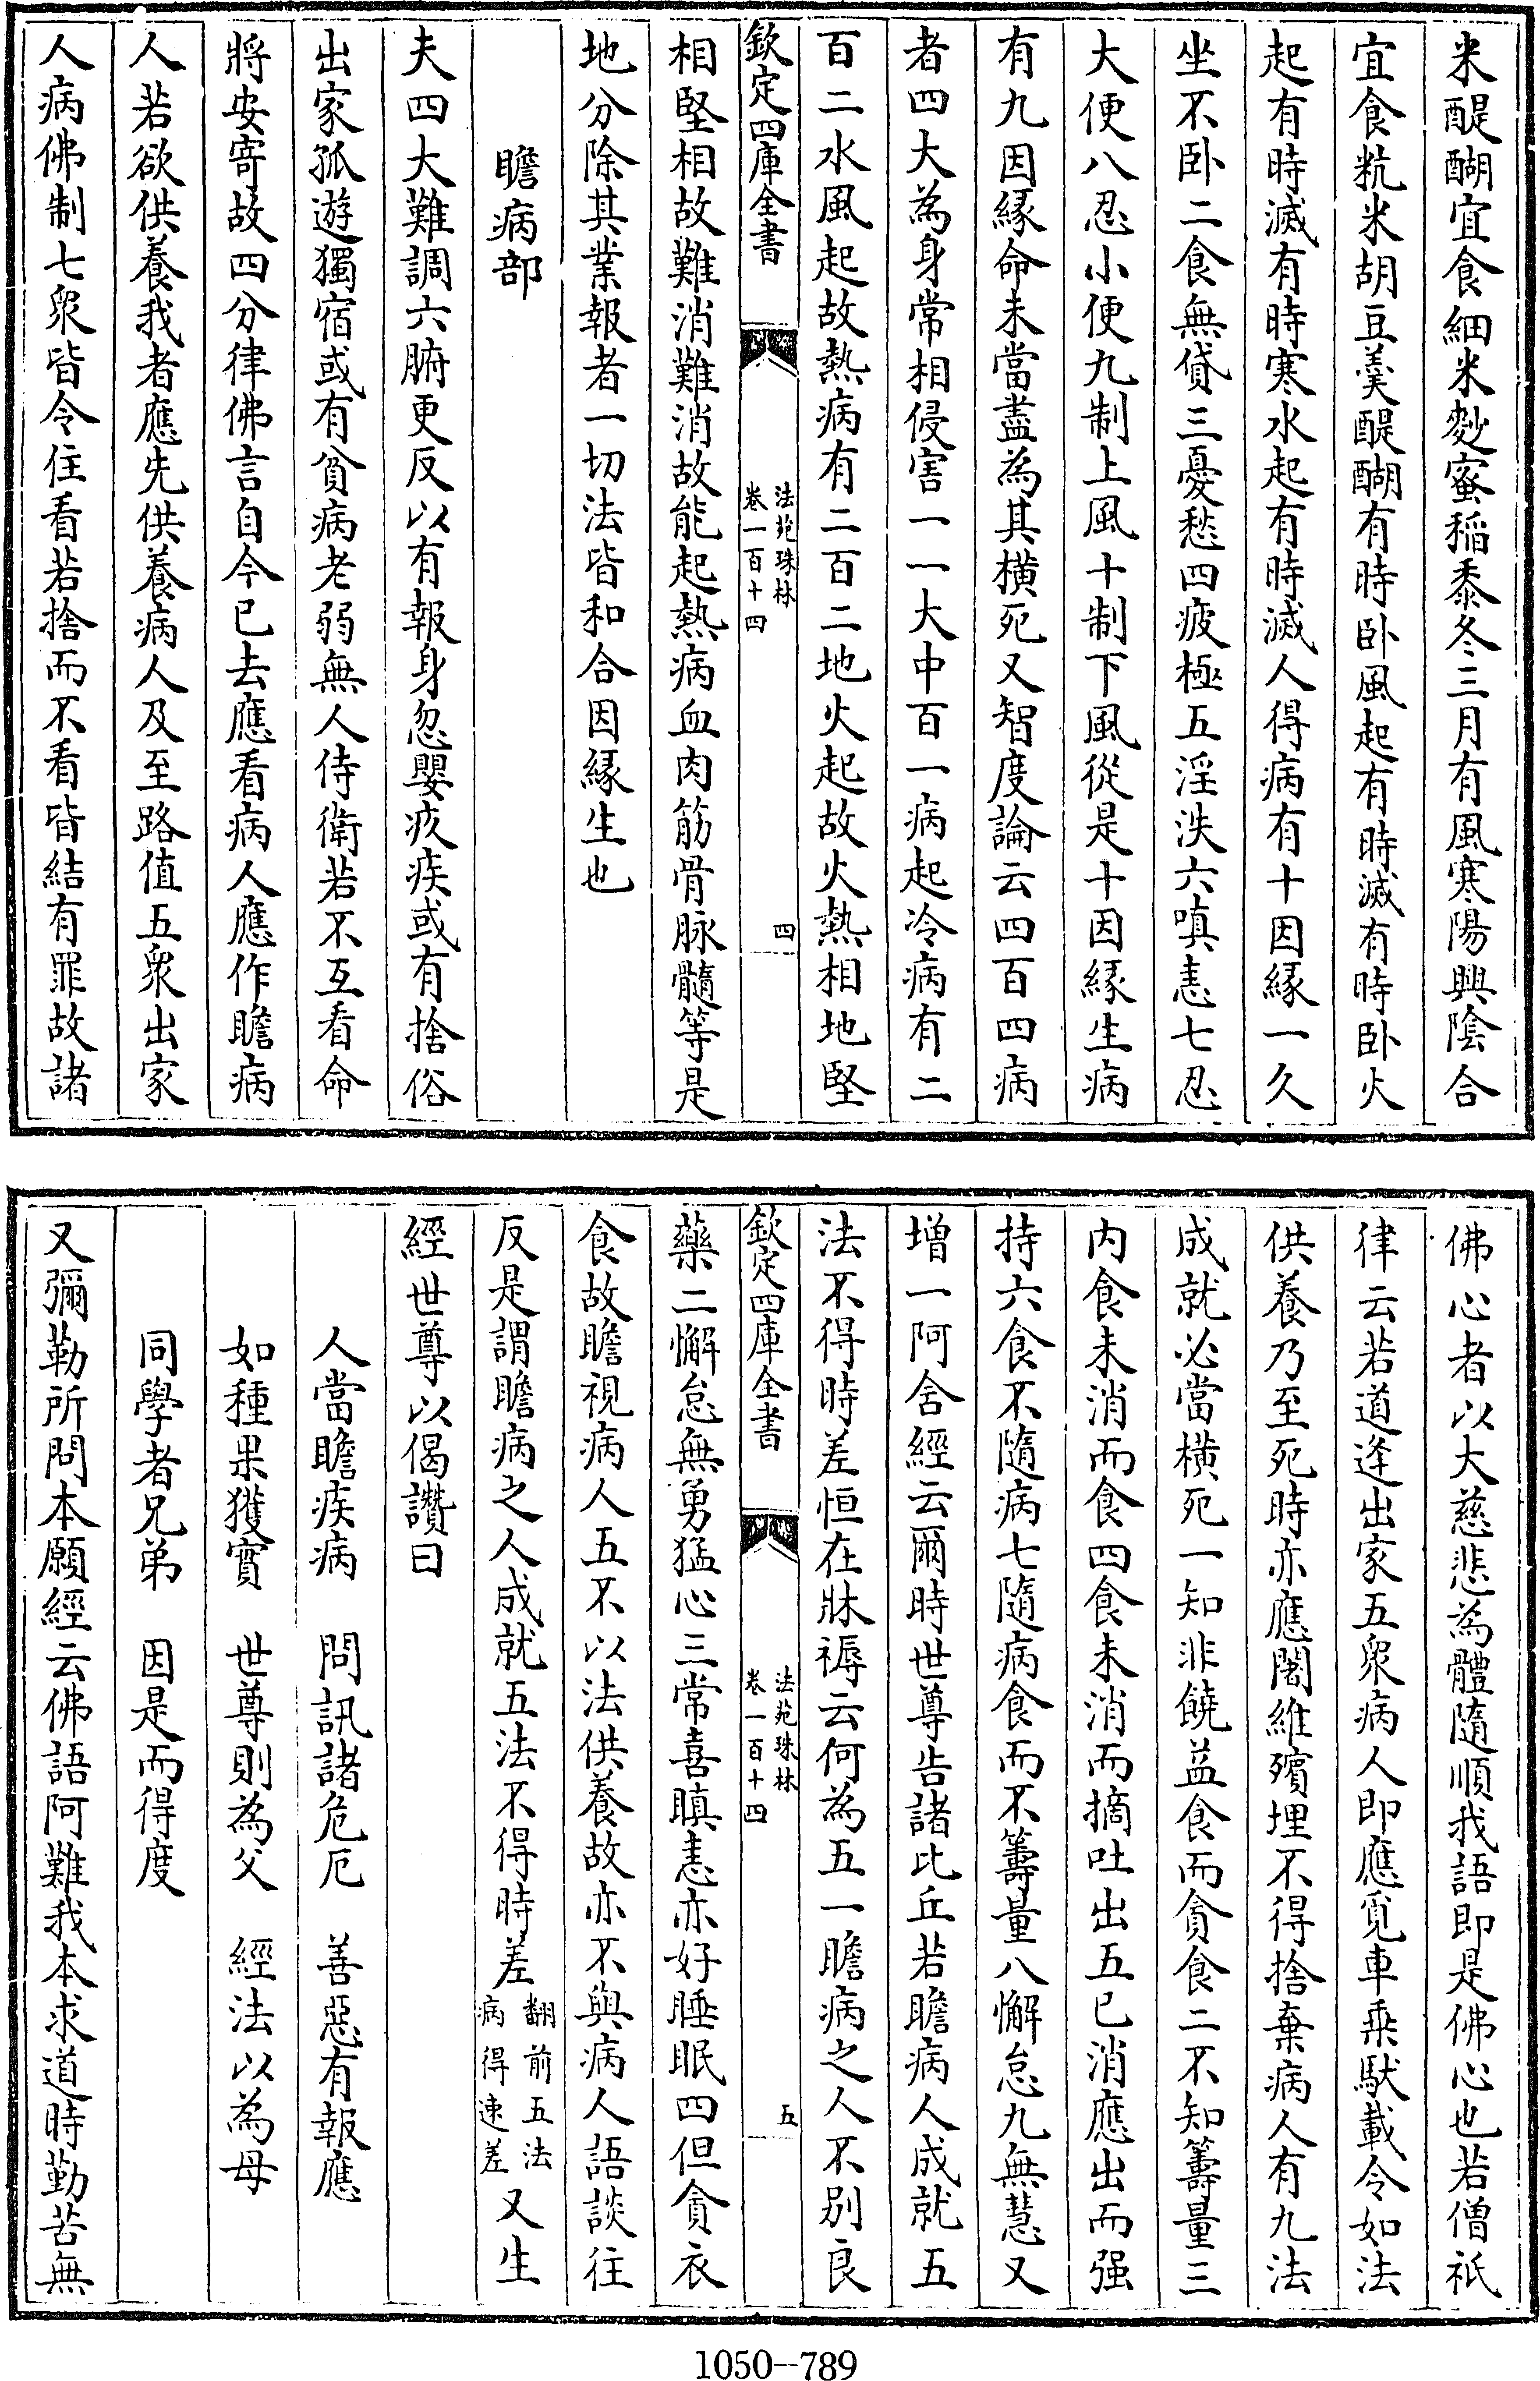 米醍醐宜食細米麨蜜稻黍冬三月有風寒陽興陰合
宜食粇米胡豆羹醍醐有時卧風起有時滅有時卧火
起有時滅有時寒水起有時滅人得病有十因緣一久
坐不卧二食無貸三憂愁四疲極五淫泆六嗔恚七忍
大便八忍小便九制上風十制下風從是十因緣生病
有九因緣命未當盡為其橫死又智度論云四百四病
者四大為身常相侵害一一大中百一病起冷病有二
百二水風起故熱病有二百二地火起故火熱相地堅
欽定四庫全書
法苑珠林
卷一百十四
四
相堅相故難消難消故能起熱病血肉筋骨脉髓等是
地分除其業報者一切法皆和合因緣生也
瞻病部
夫四大難調六腑更反以有報身忽嬰疚疾或有捨俗
出家孤遊獨宿或有貧病老弱無人侍衛若不互看命
將安寄故四分律佛言自今已去應看病人應作瞻病
人若欲供養我者應先供養病人及至路值五衆出家
人病佛制七衆皆令住看若捨而不看皆結有罪故諸
佛心者以大慈悲為體隨順我語即是佛心也若僧祇
律云若道逢出家五衆病人即應覓車乗馱載令如法
供養乃至死時亦應闍維殯埋不得捨棄病人有九法
成就必當橫死一知非饒益食而貪食二不知籌量三
内食未消而食四食未消而摘吐出五已消應出而强
持六食不隨病七隨病食而不籌量八懈怠九無慧又
增一阿含經云爾時世尊告諸比丘若瞻病人成就五
法不得時差恒在牀褥云何為五一瞻病之人不别良
欽定四庫全書
法苑珠林
卷一百十四
五
藥二懈怠無勇猛心三常喜瞋恚亦好睡眠四但貪衣
食故瞻視病人五不以法供養故亦不與病人語談往
反是謂瞻病之人成就五法不得時差翻前五法病得速差又生
經世尊以偈讚曰
人當瞻疾病　問訊諸危厄　善惡有報應
如種果獲實　世尊則為父　經法以為母
同學者兄弟　因是而得度
又彌勒所問本願經云佛語阿難我本求道時勤苦無
1050-789